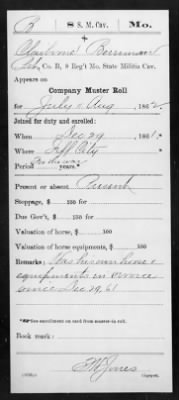 B 8 S. M. Cav. Mo.
Berriman
Co. B, 8 Reg't Mo. State Militia Cav.
Appears on
Company Muster Roll
for July & Aug, 1862.
Joined for duty and enrolled:
When Dec 29, 1861.
Where Jeff City
Period years.*
Present or absent Present
Stoppage, $ 100 for
Due Gov't, $ 100 for
Valuation of horse, $ 100
Valuation of horse equipments, $ 100
Remarks: Has his own horse &
equipments in service
since Dec 29, 61
*See enrollment on card from muster-in roll.
Book mark:
Jones
Copyist.